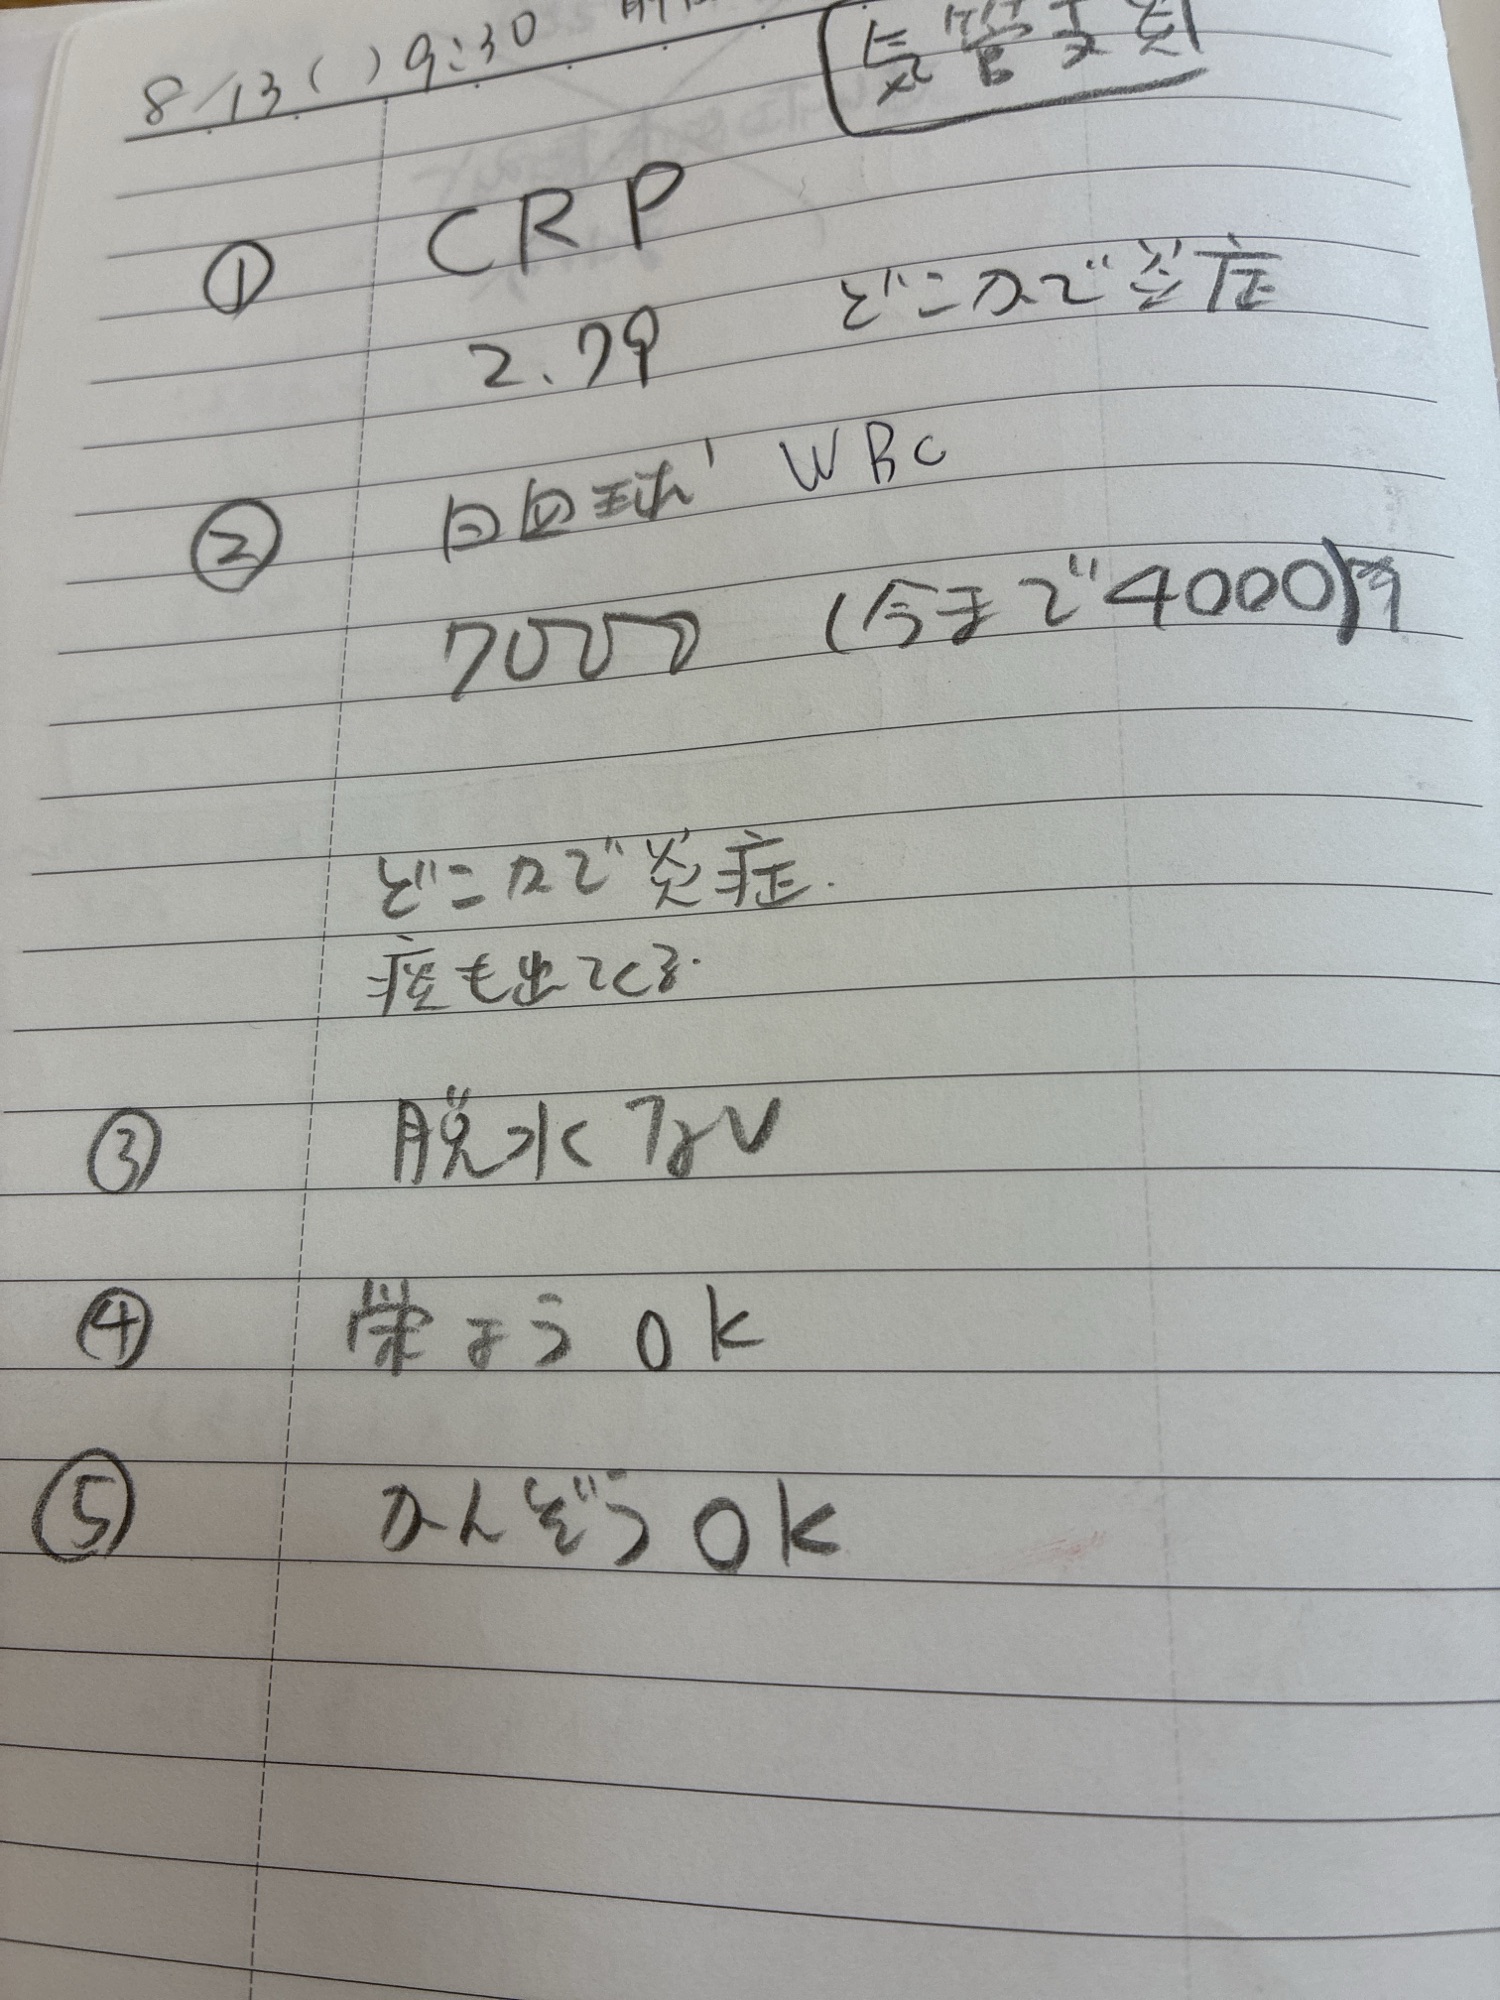 8/13( ) 9:30
気管支炎
① CRP
2.79 どこかで炎症
② 白血球 WBC
7000 (今まで4000)
どこかで炎症.
痰も出てくる.
③ 脱水なし
④ 栄よう OK
⑤ かんぞう OK